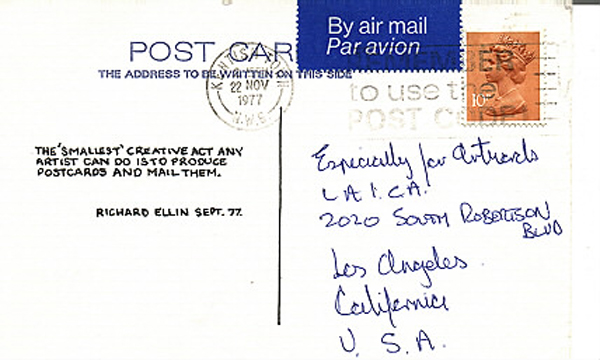 By air mail
Par avion
POST CAR
THE ADDRESS TO BE WRITTEN ON THIS SIDE
22 NOV
1977
REMEMBER
to use the
POST CODE
10
THE 'SMALLEST' CREATIVE ACT ANY
ARTIST CAN DO IS TO PRODUCE
POSTCARDS AND MAIL THEM.
RICHARD ELLIN SEPT. 77.
Especially for Artwords
L A I. C. A.
2020 SOUTH ROBERTSON
BLVD
Los Angeles.
California
U. S. A.